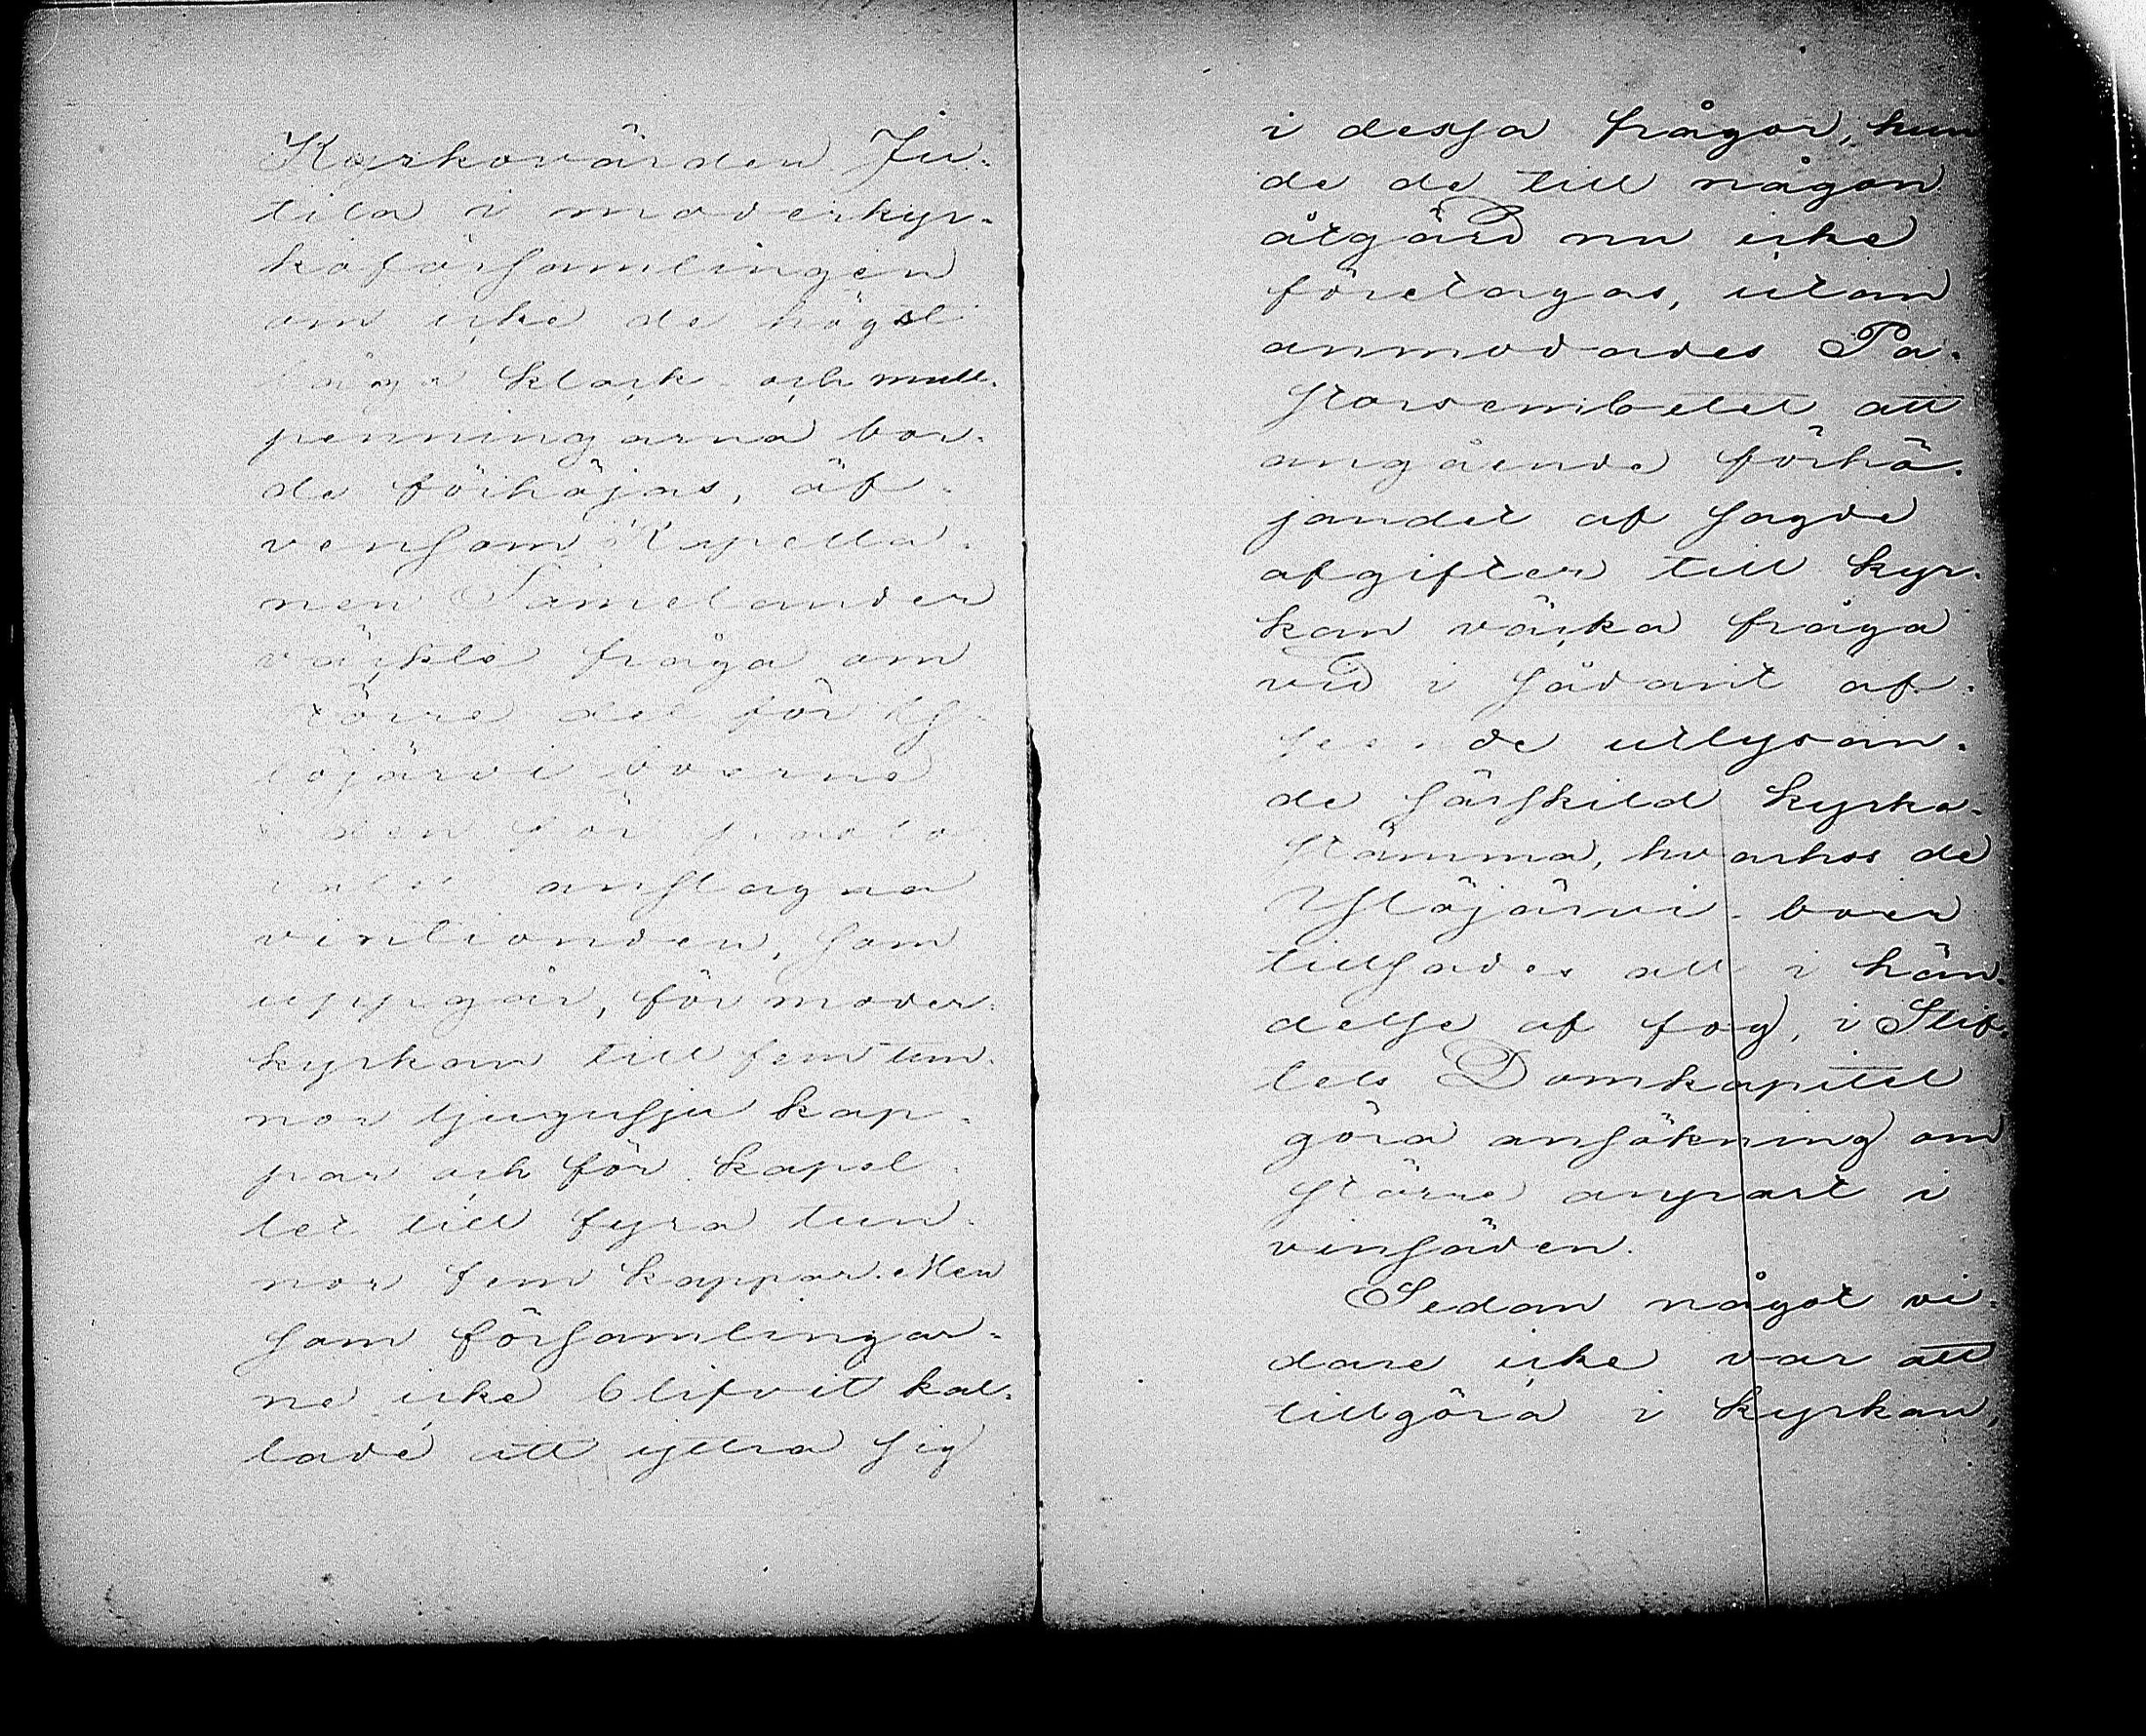 Kyrkovärden Ju-
tila i moderkyr-
koförsamlingen
om icke de högst
låga klock- och mull-
penningarna bor-
de förhöjas, äf-
vensom Kapella-
nen Lamelander
väckte fråga om
större del för Yl-
öjärvi boerne
i den för
anslagna
vintionden, som
uppgår, för moder-
kyrkan till fem tun-
nor tjugusju kap-
par och för kapel-
let till fyra tun-
nor fem kappar. Men
som församlingar-
ne icke blifvit kal-
lade att yttra sig
i dessa frågor, kun
de de till någon
åtgärd nu icke
företagas, utan
anmodades Pa-
storsembetet att
angående förhö-
jandet af sagde
afgifter till kyr-
kan väcka fråga
vid i sådant af-
seende utlysan-
de särskild kyrko-
stämma, hvarhos de
Ylöjärvi-boer
tillsades att i hän-
delse af fog, i Stif-
tets Domkapitel
göra ansökning om
större anpart i
vinsäden.
Sedan något vi-
dare icke var att
tillgöra i kyrkan,